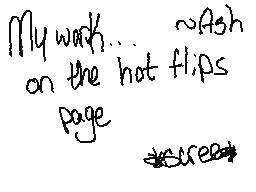 My work... ~Ash
on the hot flips
page
*scree*